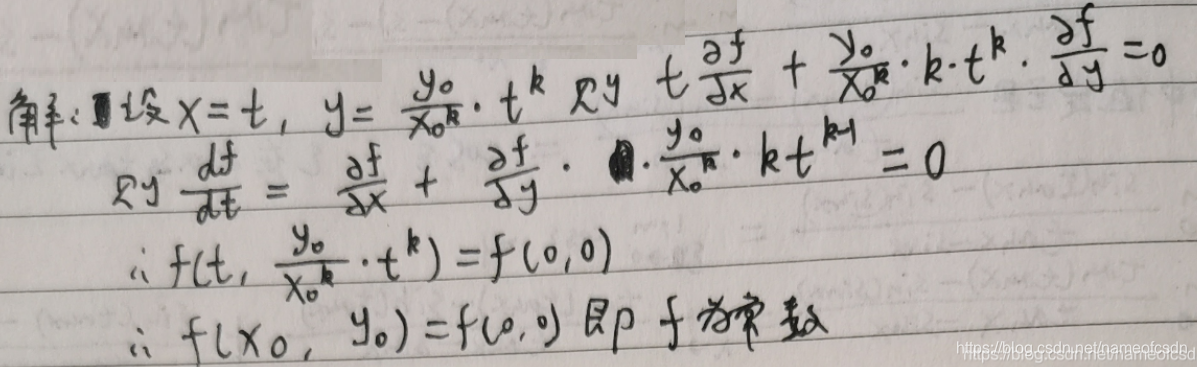 解:设 x=t, y= y₀/x₀ᵏ · tᵏ 则 t ∂f/∂x + y₀/x₀ᵏ · k · tᵏ · ∂f/∂y =0
则 df/dt = ∂f/∂x + ∂f/∂y · · y₀/x₀ᵏ · k tᵏ⁻¹ = 0
∴ f(t, y₀/x₀ᵏ · tᵏ) = f(0,0)
∴ f(x₀, y₀) = f(0,0) 即 f 为常数
https://blog.csdn.net/nameofcsdn